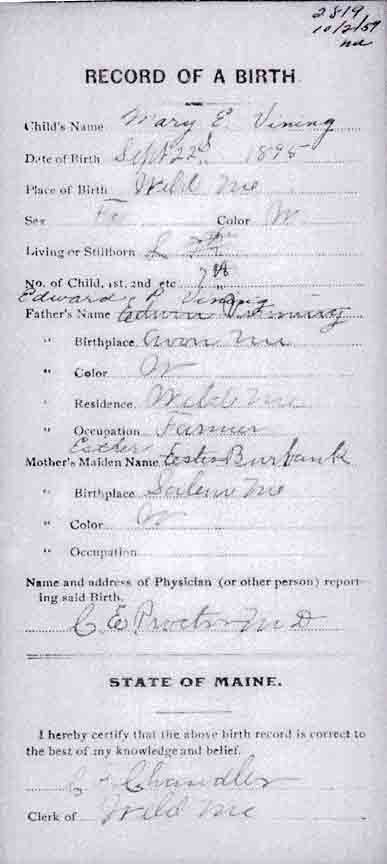 2819
10/2/57
RECORD OF A BIRTH
Child's Name Mary E. Vining
Date of Birth Sept 22d 1895
Place of Birth Weld Me
Sex Fe Color W
Living or Stillborn L
No. of Child, 1st, 2nd etc 7th
Edward P Vining
Father's Name Edwin Vining
" Birthplace Avon Me
" Color W
" Residence Weld Me
" Occupation Farmer
Esther
Mother's Maiden Name Ester Burbank
" Birthplace Salem Me
" Color W
" Occupation
Name and address of Physician (or other person) report-
ing said Birth.
C. E. Proctor M D
STATE OF MAINE.
I hereby certify that the above birth record is correct to
the best of my knowledge and belief.
Chandler
Clerk of Weld Me